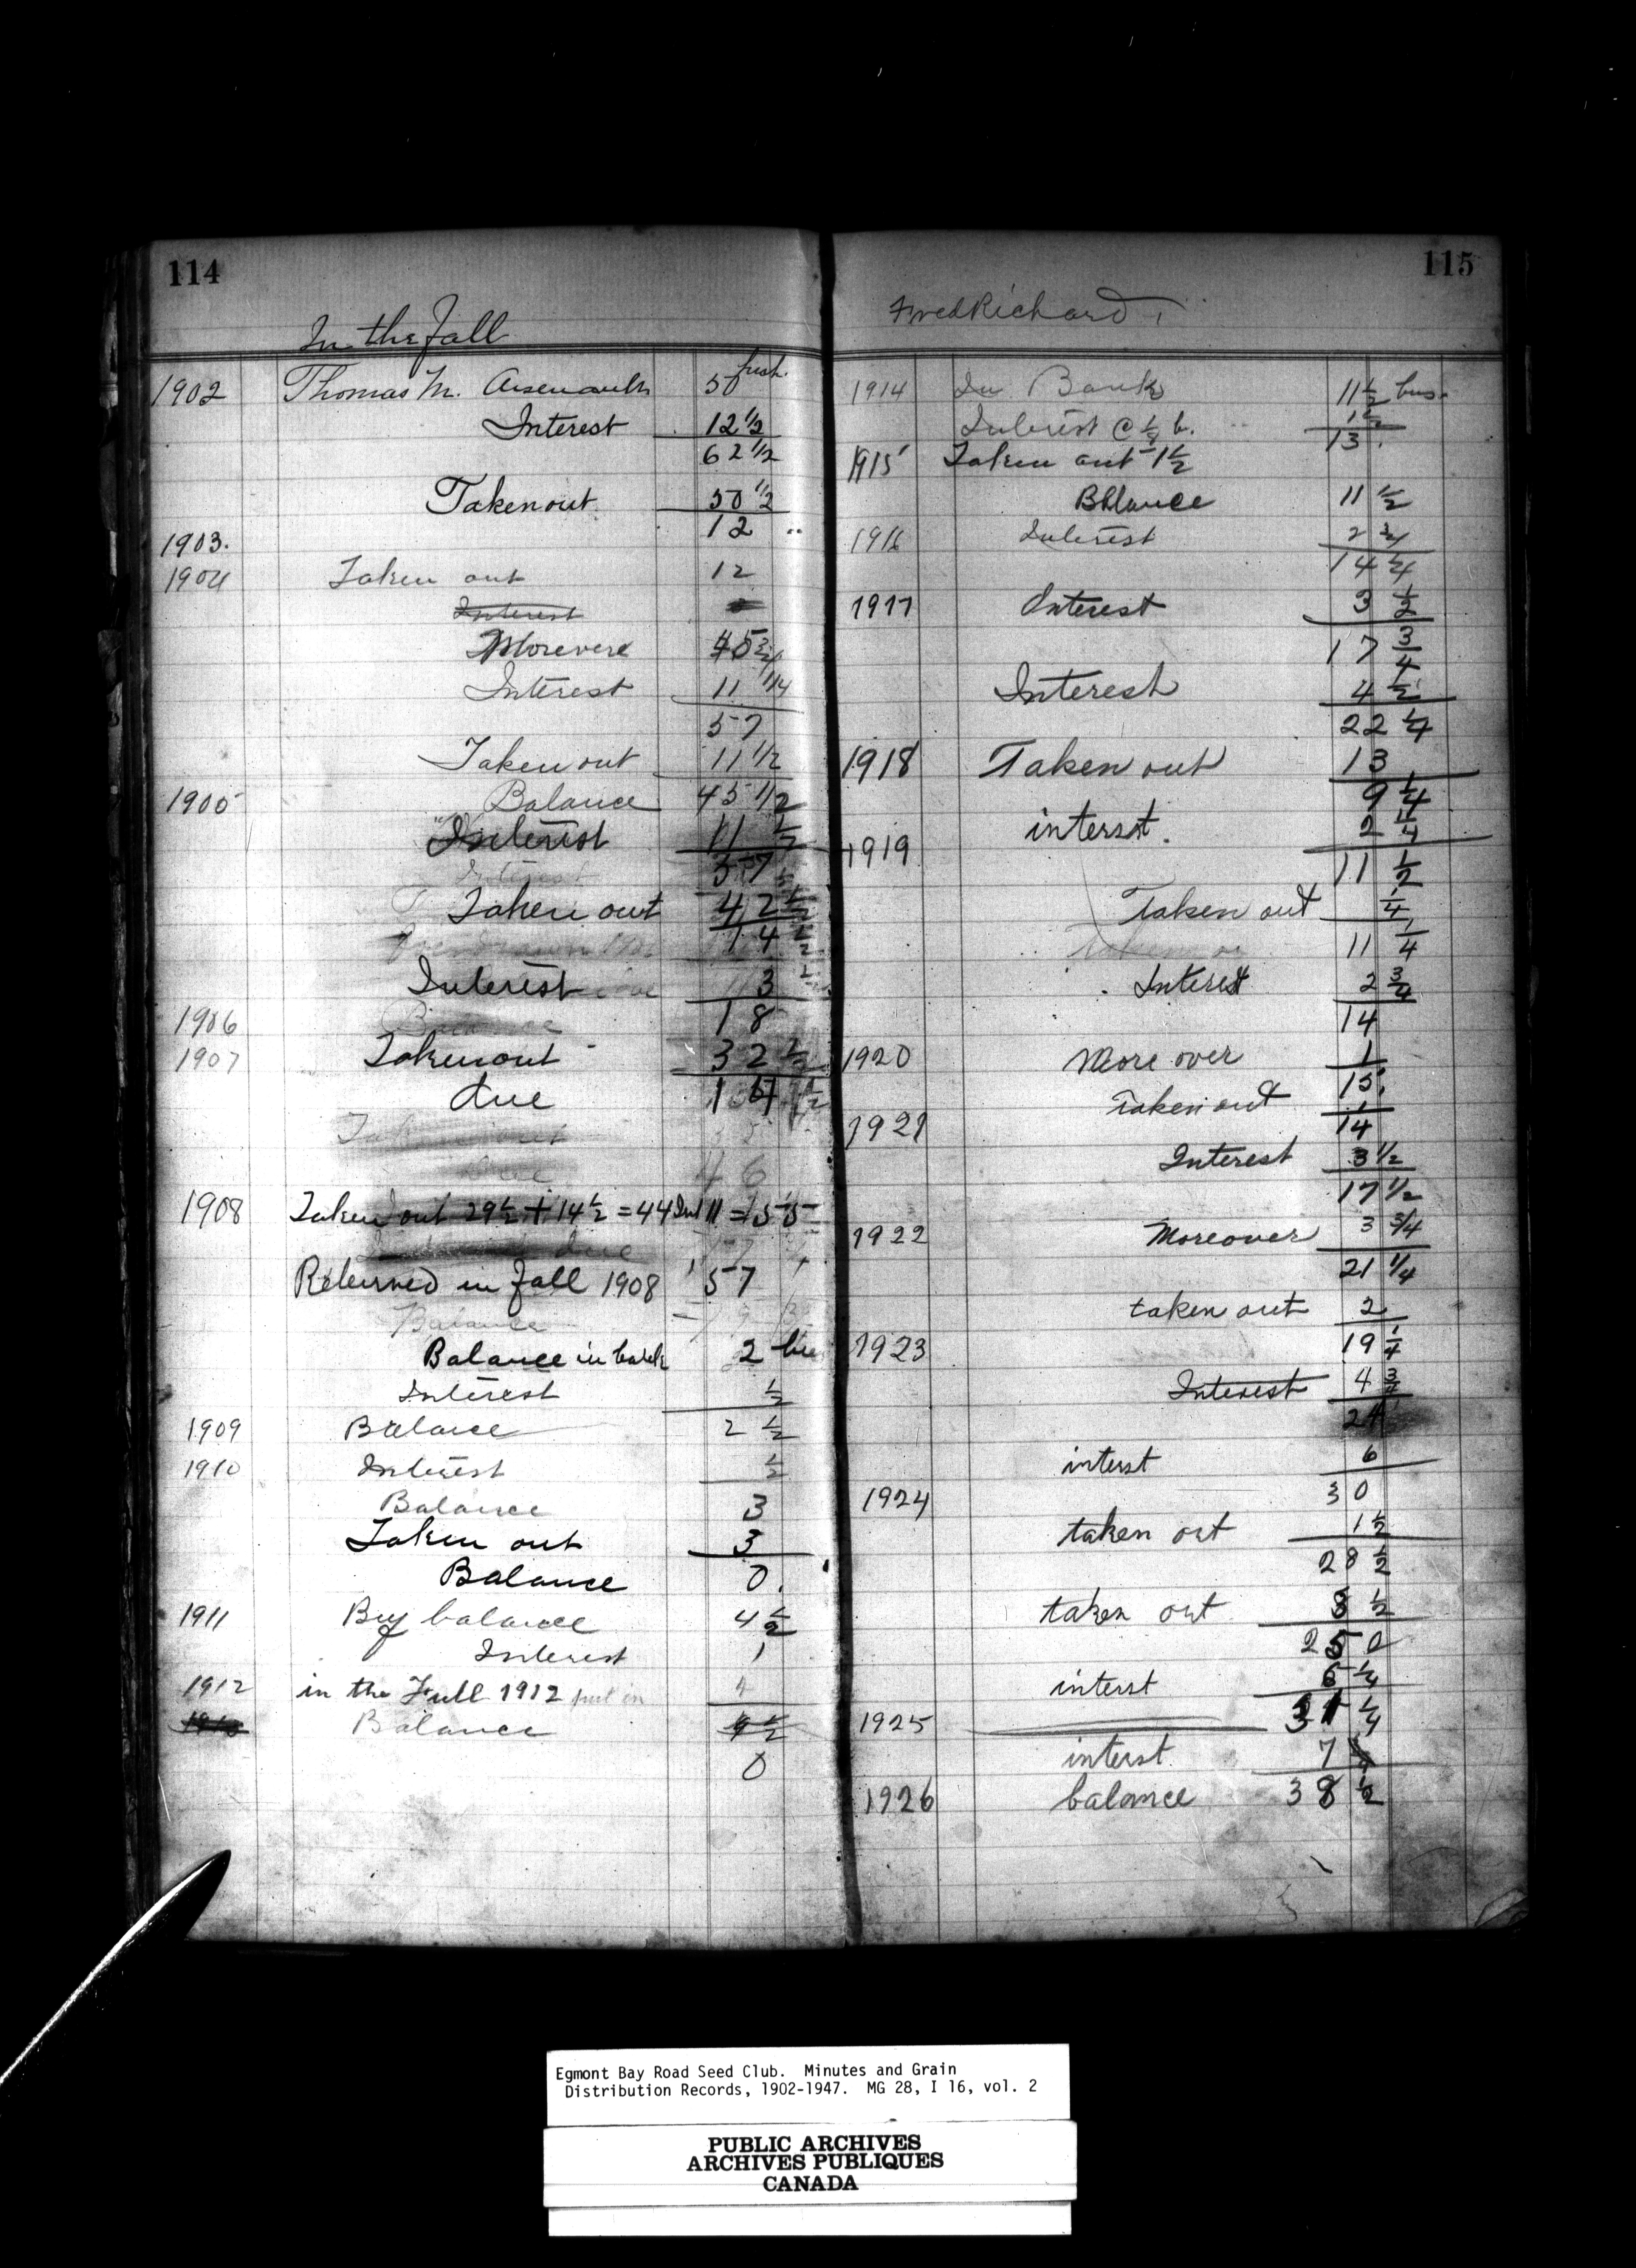 114
In the Fall
1902 Thomas M. Arsenault 50 bush.
Interest 12 1/2
62 1/2
Taken out 50 1/2
12 "
1903.
1904 Taken out 12
Interest
Morevere 45 3/4
Interest 11 1/4
57
Taken out 11 1/2
1905 Balance 45 1/2
Interest 11 1/2
57
Taken out 42 1/2
14 1/2
Interest 3 1/2
1906 18
1907 Taken out 32 1/2
due 14 1/2
1908 Taken out 29 1/2 + 14 1/2 = 44 Int 11 = 55
Returned in Fall 1908 57
Balance
Balance in bank 2 bu
Interest 1/2
1909 Balance 2 1/2
1910 Interest 1/2
Balance 3
Taken out 3
Balance 0.
1911 By balance 4 1/2
Interest 1
1912 in the Full 1912 put in 4
Balance 9 1/2
0
115
Fred Richard
1914 In Bank 11 1/2 bus.
Interest @ 1/8 b. 1 1/2
13.
1915 Taken out 1 1/2
Bblance 11 1/2
1916 Interest 2 3/4
14 1/4
1917 Interest 3 1/2
17 3/4
Interest 4 1/2
22 1/4
1918 Taken out 13
9 1/4
interst. 2 1/4
1919
11 1/2
Taken out 1/4
11 1/4
Interest 2 3/4
14
1920 More over 1
15.
Taken out 1
1921 14
Interest 3 1/2
17 1/2
1922 Moreover 3 3/4
21 1/4
taken out 2
1923 19 1/4
Interest 4 3/4
24
interst 6
1924 30
taken ort 1 1/2
28 1/2
taken ort 8 1/2
25 0
interst 6 1/4
1925 31 1/4
interst. 7
1926 balance 38 1/2
Egmont Bay Road Seed Club. Minutes and Grain
Distribution Records, 1902-1947. MG 28, I 16, vol. 2
PUBLIC ARCHIVES
ARCHIVES PUBLIQUES
CANADA